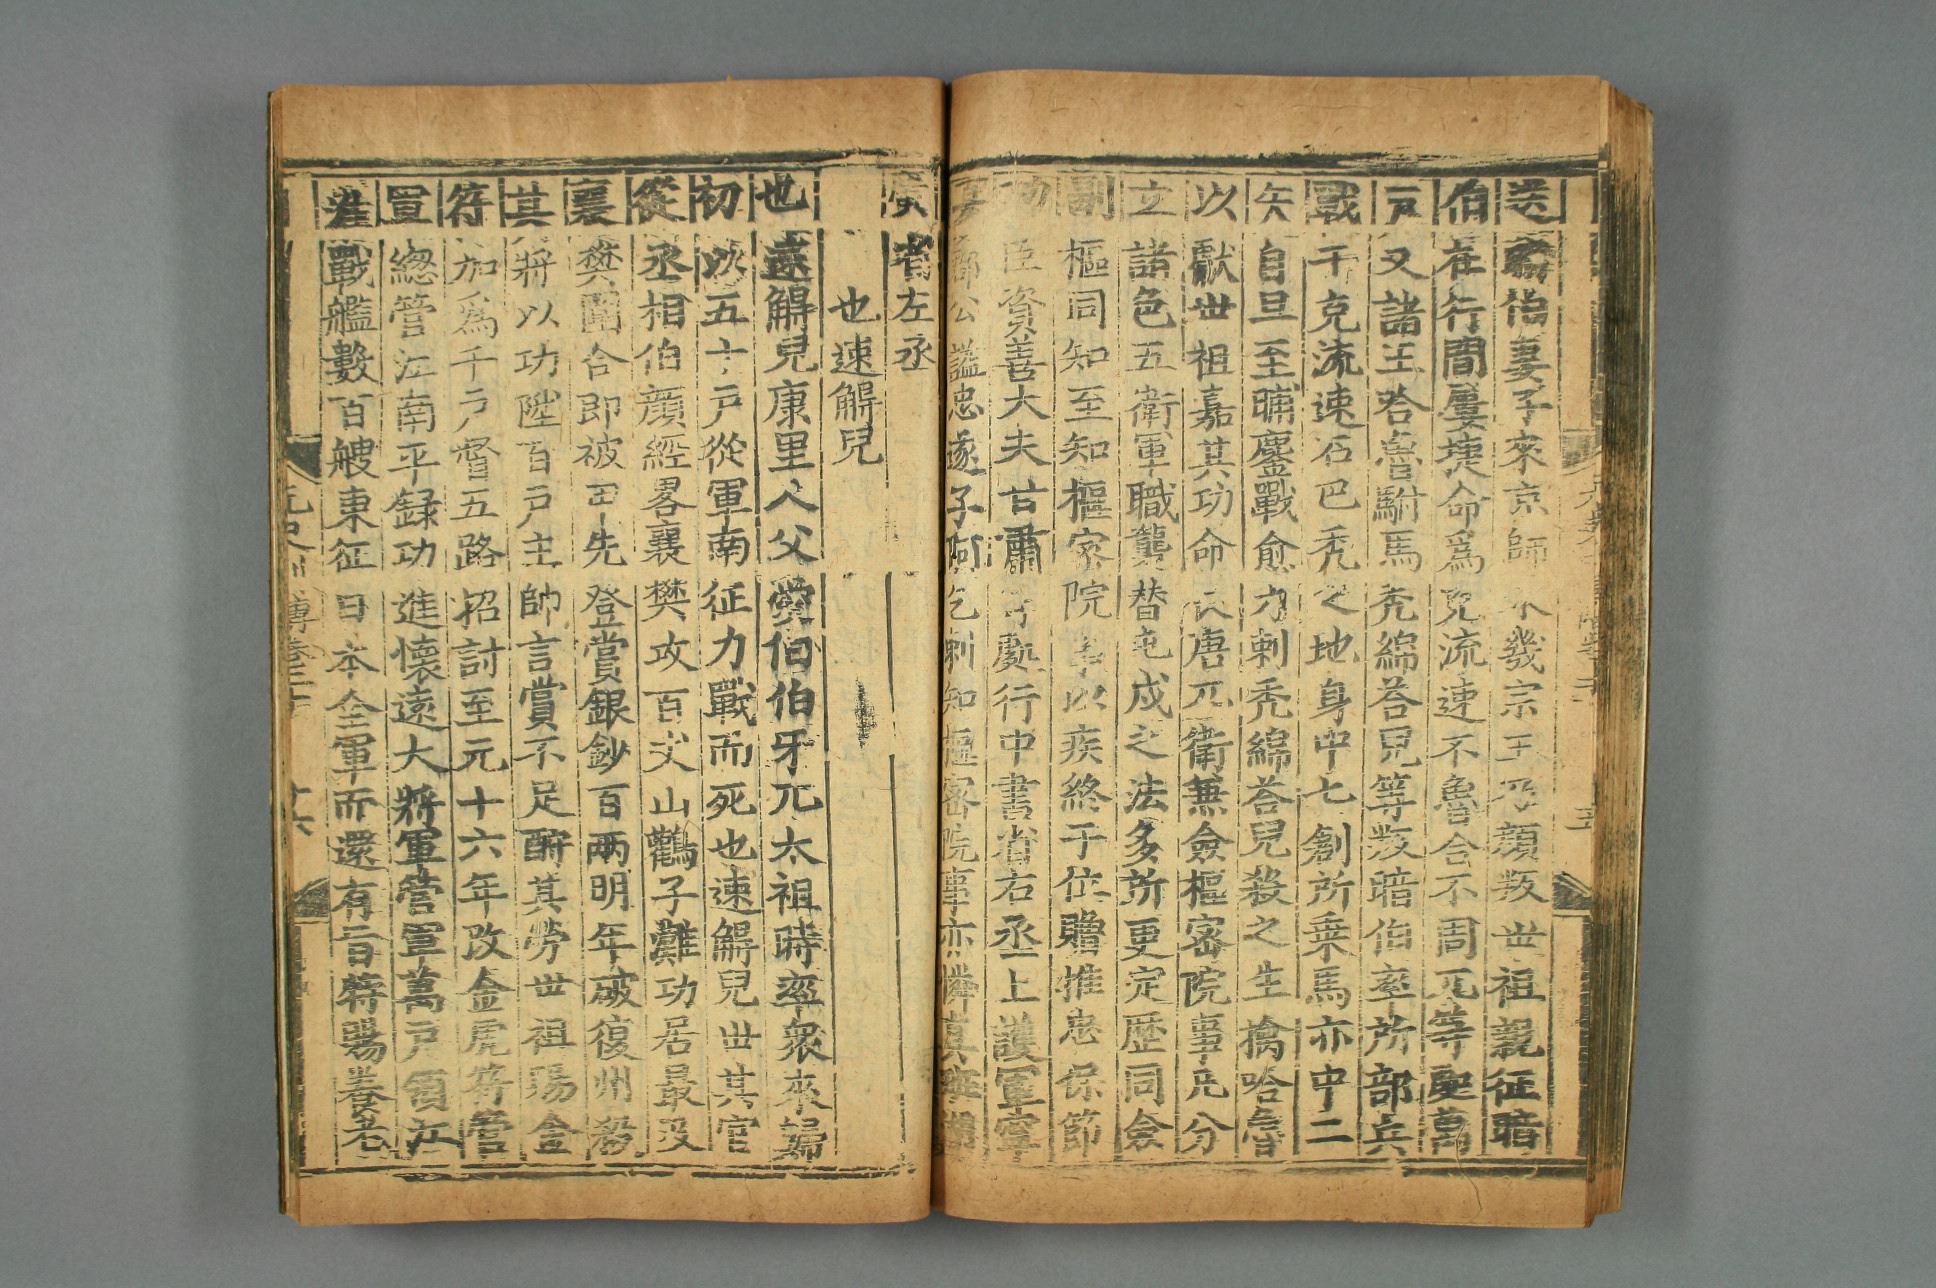 送還伯妻子來京師不幾宗王乃顏叛世祖親征暗
伯在行間屢捷命爲克流速不魯合不周兀等處萬
戸又諸王哈魯駙馬禿綿荅兒等叛暗伯率所部兵
戰于克流速石巴禿之地身中七創所乗馬亦中二
矢自旦至晡鏖戰愈力剌禿綿荅兒殺之生擒哈魯
以獻世祖嘉其功命長唐兀衛兼僉樞密院事凡分
立諸色五衛軍職襲替屯戍之法多所更定歷同僉
副樞同知至知樞密院事以疾終于位贈推忠保節
功臣資善大夫甘肅等處行中書省右丞上護軍寧
夏郡公謚忠遂子阿乞剌知樞密院事亦憐真班湖
廣省左丞
也速䚟兒
也速䚟兒康里人父愛伯伯牙兀太祖時率衆來歸
初以五十戸從軍南征力戰而死也速䚟兒世其官
從丞相伯顔經畧襄樊攻百丈山鸛子灘功居最及
襄樊圍合即被甲先登賞銀鈔百兩明年破復州務
其將以功陞百戸主帥言賞不足酧其勞世祖賜金
符加爲千戸督五路招討至元十六年改金虎符管
軍總管江南平録功進懷遠大將軍管軍萬戸領江
淮戰艦數百艘東征日本全軍而還有旨特賜養老
元史列傳卷二十
十六
十五